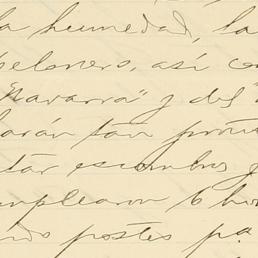 la humedad, la
peloneros, así co
"Navarra" y del "
larán tan pront
tar escombros y
mplearon 6 ho
ndo postes pa